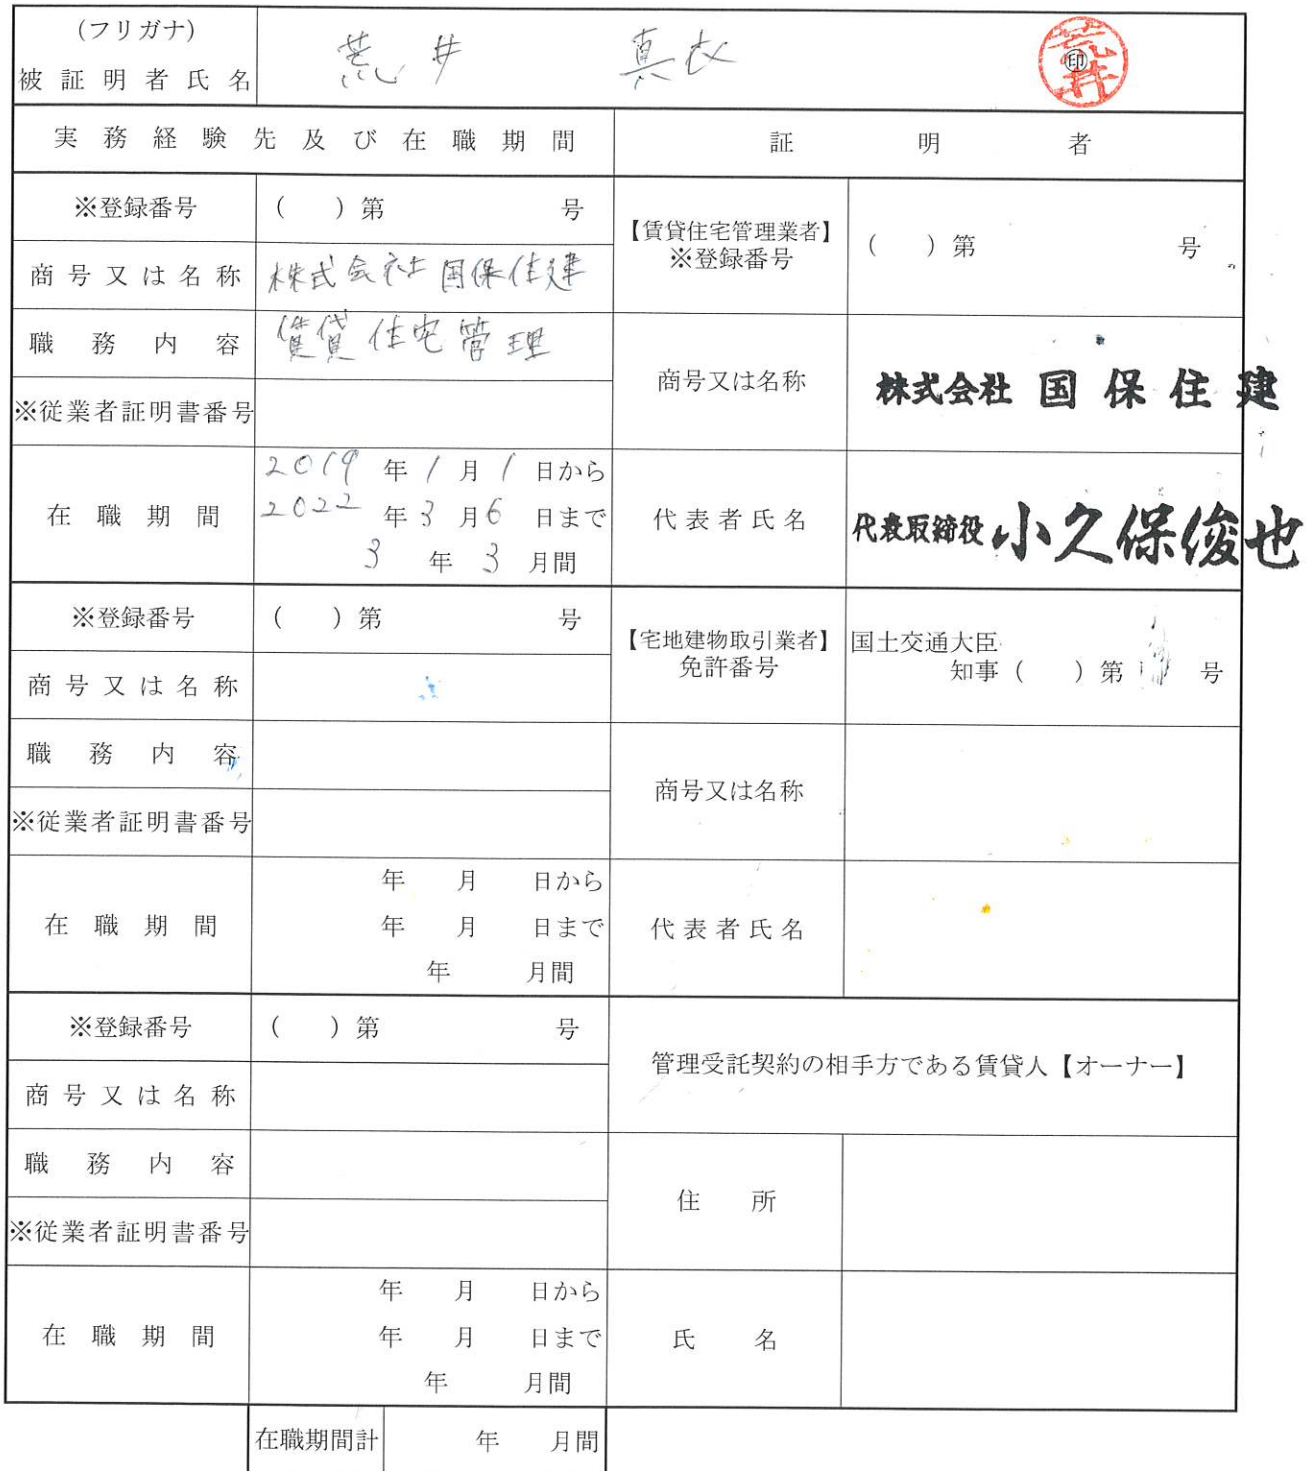 (フリガナ)
被証明者氏名 荒井 真衣 ㊞ 荒井
実務経験先及び在職期間 証明者
※登録番号 ( )第 号
【賃貸住宅管理業者】
※登録番号 ( )第 号
商号又は名称 株式会社国保住建
職務内容 賃貸住宅管理
商号又は名称 株式会社 国保住建
※従業者証明書番号
在職期間
2019年1月1日から
2022年3月6日まで
3年3月間
代表者氏名 代表取締役 小久保俊也
※登録番号 ( )第 号
【宅地建物取引業者】
免許番号
国土交通大臣
知事( )第 号
商号又は名称
職務内容
商号又は名称
※従業者証明書番号
在職期間
年 月 日から
年 月 日まで
年 月間
代表者氏名
※登録番号 ( )第 号
管理受託契約の相手方である賃貸人【オーナー】
商号又は名称
職務内容
住所
※従業者証明書番号
在職期間
年 月 日から
年 月 日まで
年 月間
氏名
在職期間計 年 月間